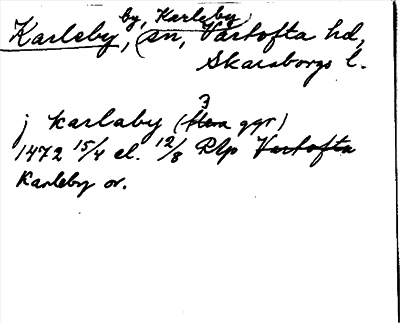 by, Karleby
Karleby, sn, Vartofta hd,
Skaraborgs l.
3
j karlaby (flera ggr)
1472 15/4 el. 12/8 Rlp Vartofta
Karleby or.